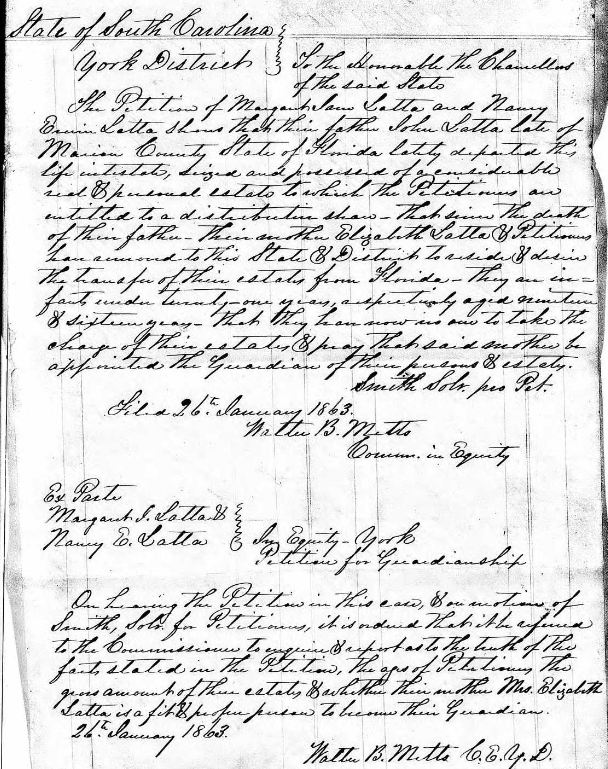 State of South Carolina
York District
To the Honorable the Chancellors
of the said State
The Petition of Margaret Jane Latta and Nancy
Erwin Latta shows that their father John Latta late of
Marion County State of Florida lately departed this
life intestate, seized and possessed of a considerable
real & personal estate to which the Petitioners are
entitled to a distributive share – that since the death
of their father – their mother Elizabeth Latta & Petitioners
have removed to this State & District to reside & desire
the transfer of their estates from Florida – they are in=
fants under twenty-one years, respectively aged nineteen
& sixteen years – that they have now no one to take the
charge of their estates & pray that said mother be
appointed the Guardian of their persons & estates.
Smith Solr. pro Pet.
Filed 26th January 1863.
Walter B. Metts
Comm. in Equity
Ex Parte
Margaret J. Latta &
Nancy E. Latta
In Equity – York
Petition for Guardianship
On hearing the Petition in this case, & on motion of
Smith, Solr. for Petitioners, it is ordered that it be referred
to the Commissioner to enquire & report as to the truth of the
facts stated in the Petition, the ages of Petitioners, the
gross amount of their estates & whether their mother Mrs. Elizabeth
Latta is a fit & proper person to become their Guardian.
26th January 1863.
Walter B. Metts C.E.Y.D.